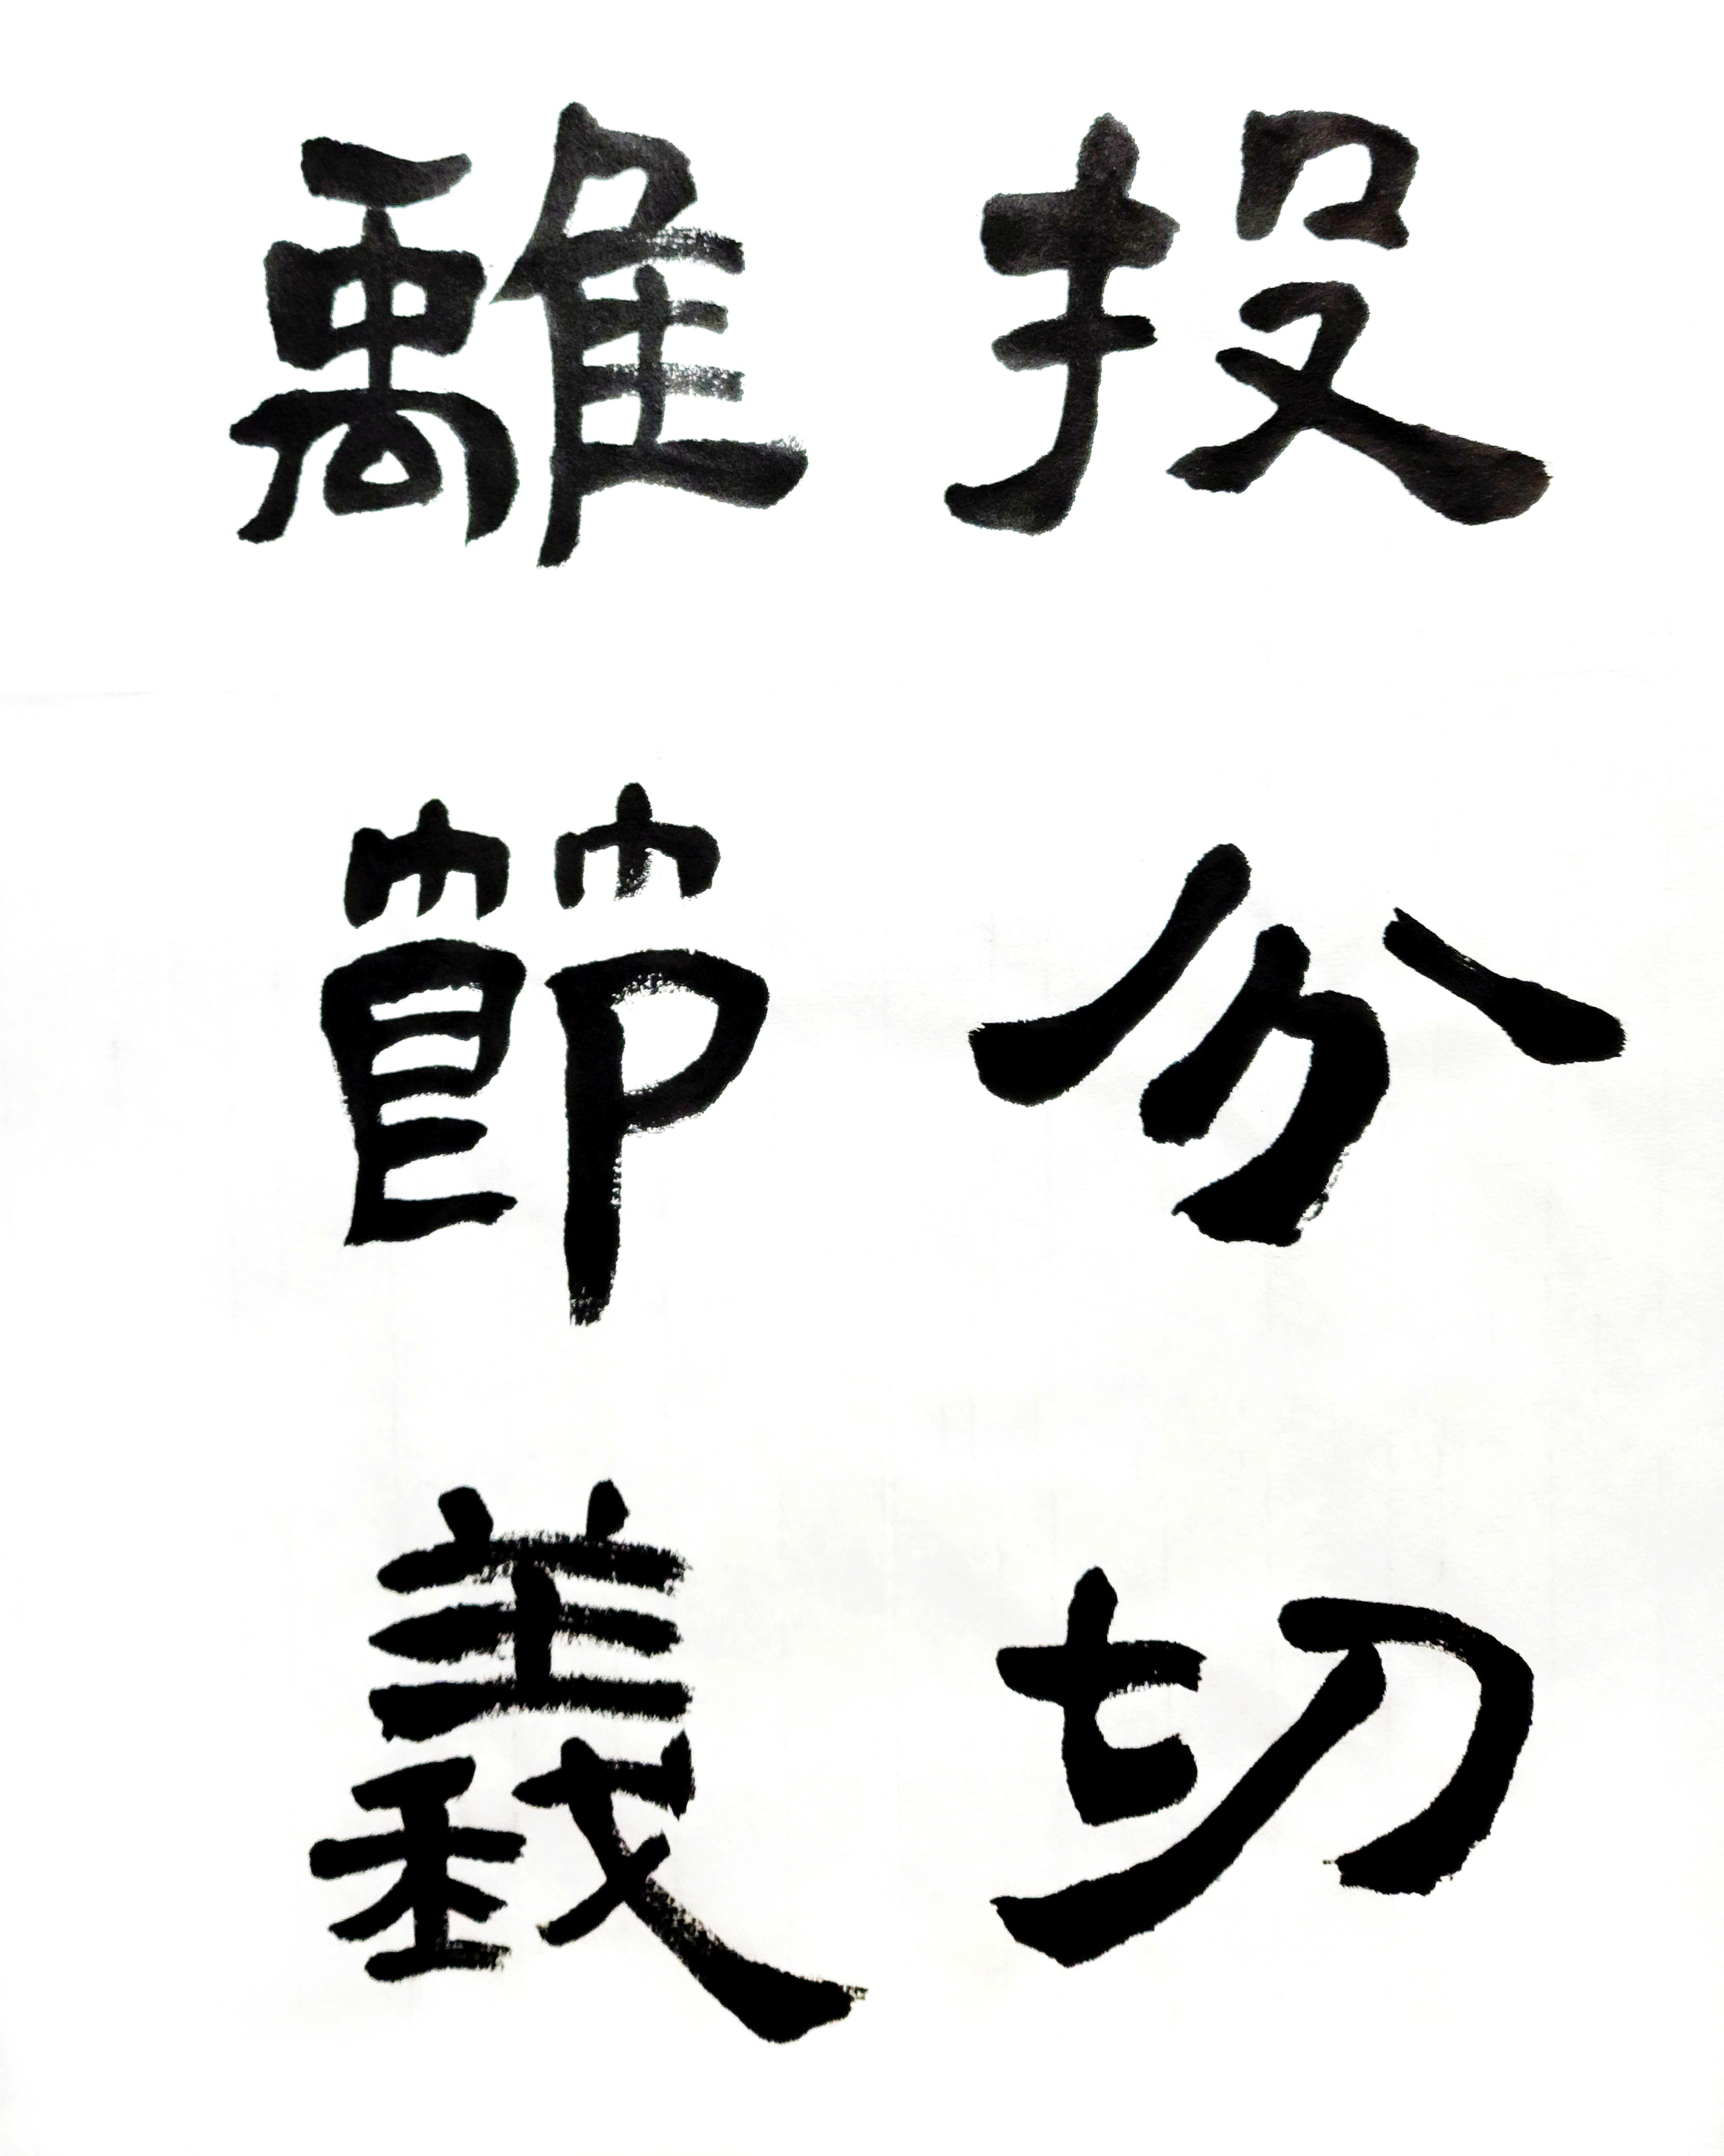 投分切
離節義